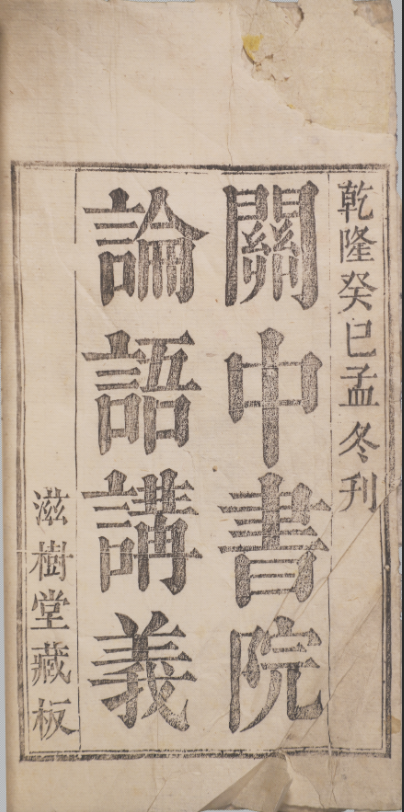 乾隆癸巳孟冬刊
關中書院
論語講義
滋樹堂藏板